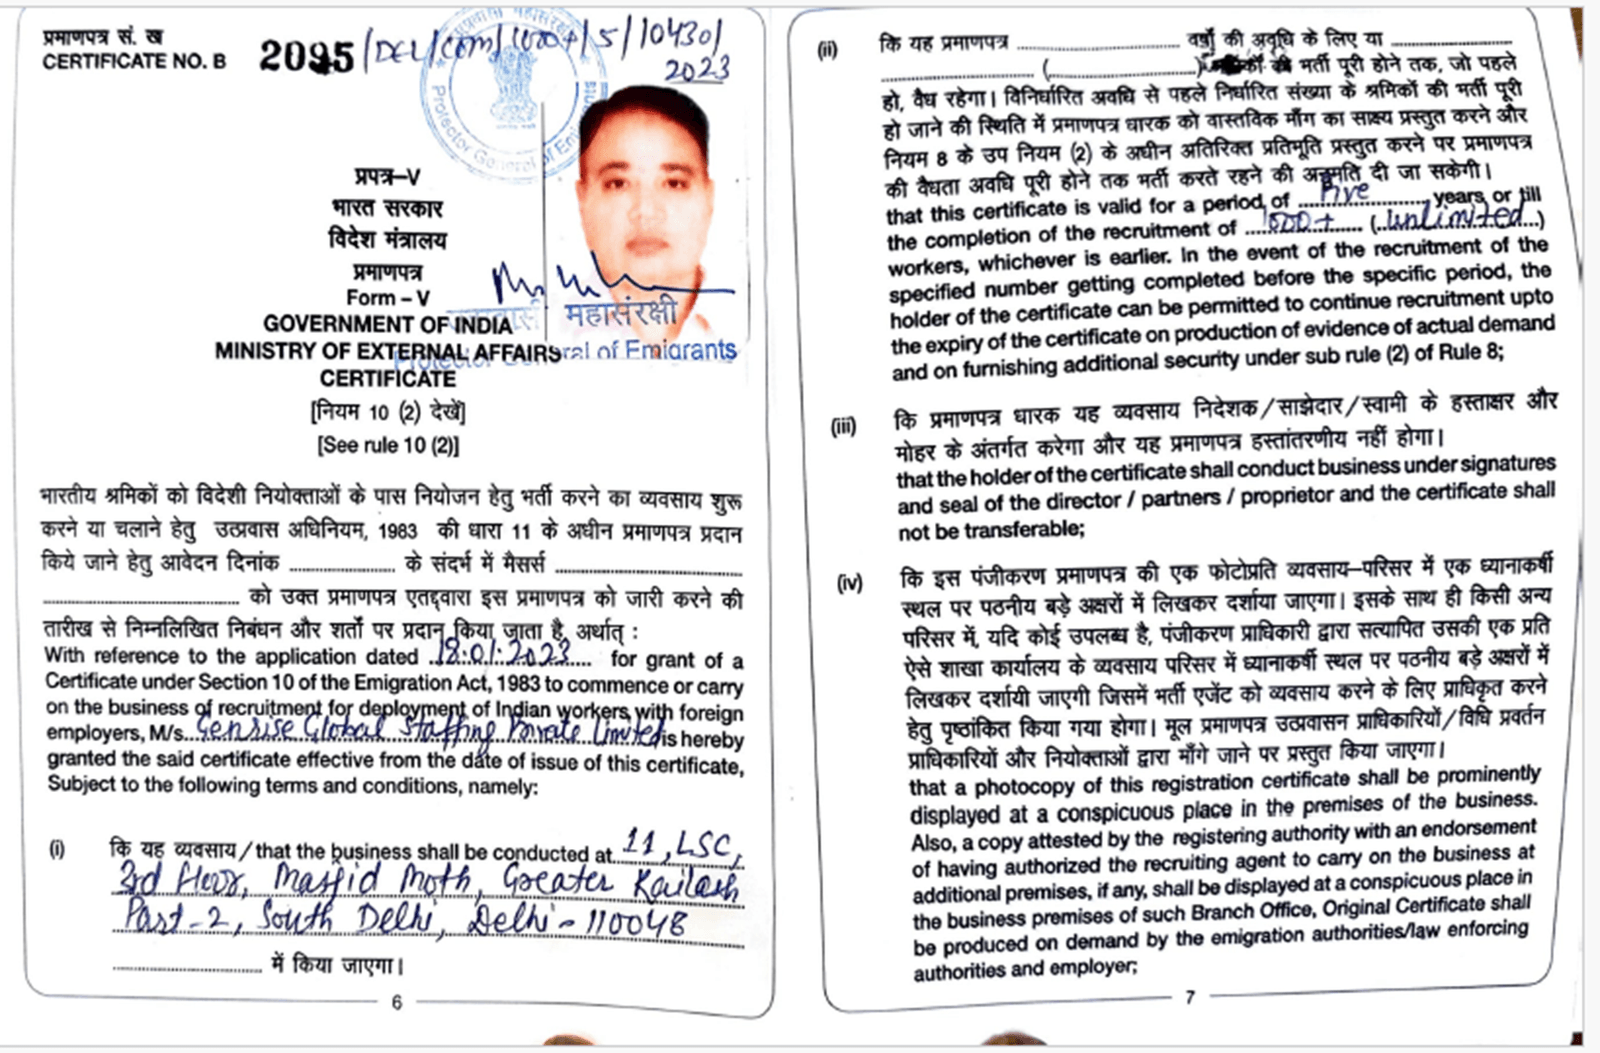 प्रमाणपत्र सं. ख
CERTIFICATE NO. B 2095/DEL/COM/1000+/5/10430/
2023
Protector General of Emigrants
प्रपत्र–V
भारत सरकार
विदेश मंत्रालय
प्रमाणपत्र
Form – V
GOVERNMENT OF INDIA
महासंरक्षी
MINISTRY OF EXTERNAL AFFAIRS
Protector General of Emigrants
CERTIFICATE
[नियम 10 (2) देखें]
[See rule 10 (2)]
भारतीय श्रमिकों को विदेशी नियोक्ताओं के पास नियोजन हेतु भर्ती करने का व्यवसाय शुरू
करने या चलाने हेतु उत्प्रवास अधिनियम, 1983 की धारा 11 के अधीन प्रमाणपत्र प्रदान
किये जाने हेतु आवेदन दिनांक .................... के संदर्भ में मैसर्स ....................................
.................................... को उक्त प्रमाणपत्र एतद्द्वारा इस प्रमाणपत्र को जारी करने की
तारीख से निम्नलिखित निबंधन और शर्तों पर प्रदान किया जाता है, अर्थात् :
With reference to the application dated 18.01.2023 for grant of a
Certificate under Section 10 of the Emigration Act, 1983 to commence or carry
on the business of recruitment for deployment of Indian workers with foreign
employers, M/s. Genrise Global Staffing Private Limited is hereby
granted the said certificate effective from the date of issue of this certificate,
Subject to the following terms and conditions, namely:
(i) कि यह व्यवसाय/that the business shall be conducted at 11, LSC,
3rd Floor, Masjid Moth, Greater Kailash
Part-2, South Delhi, Delhi-110048
.......................... में किया जाएगा।
6
(ii) कि यह प्रमाणपत्र .............................. वर्षों की अवधि के लिए या ......................
.......................... (..........................) भर्ती पूरी होने तक, जो पहले
हो, वैध रहेगा। विनिर्धारित अवधि से पहले निर्धारित संख्या के श्रमिकों की भर्ती पूरी
हो जाने की स्थिति में प्रमाणपत्र धारक को वास्तविक माँग का साक्ष्य प्रस्तुत करने और
नियम 8 के उप नियम (2) के अधीन अतिरिक्त प्रतिमूति प्रस्तुत करने पर प्रमाणपत्र
की वैधता अवधि पूरी होने तक भर्ती करते रहने की अनुमति दी जा सकेगी।
that this certificate is valid for a period of Five years or till
the completion of the recruitment of 1000+ (unlimited)
workers, whichever is earlier. In the event of the recruitment of the
specified number getting completed before the specific period, the
holder of the certificate can be permitted to continue recruitment upto
the expiry of the certificate on production of evidence of actual demand
and on furnishing additional security under sub rule (2) of Rule 8;
(iii) कि प्रमाणपत्र धारक यह व्यवसाय निदेशक/साझेदार/स्वामी के हस्ताक्षर और
मोहर के अंतर्गत करेगा और यह प्रमाणपत्र हस्तांतरणीय नहीं होगा।
that the holder of the certificate shall conduct business under signatures
and seal of the director / partners / proprietor and the certificate shall
not be transferable;
(iv) कि इस पंजीकरण प्रमाणपत्र की एक फोटोप्रति व्यवसाय–परिसर में एक ध्यानाकर्षी
स्थल पर पठनीय बड़े अक्षरों में लिखकर दर्शाया जाएगा। इसके साथ ही किसी अन्य
परिसर में, यदि कोई उपलब्ध है, पंजीकरण प्राधिकारी द्वारा सत्यापित उसकी एक प्रति
ऐसे शाखा कार्यालय के व्यवसाय परिसर में ध्यानाकर्षी स्थल पर पठनीय बड़े अक्षरों में
लिखकर दर्शायी जाएगी जिसमें भर्ती एजेंट को व्यवसाय करने के लिए प्राधिकृत करने
हेतु पृष्ठांकित किया गया होगा। मूल प्रमाणपत्र उत्प्रवासन प्राधिकारियों/विधि प्रवर्तन
प्राधिकारियों और नियोक्ताओं द्वारा माँगे जाने पर प्रस्तुत किया जाएगा।
that a photocopy of this registration certificate shall be prominently
displayed at a conspicuous place in the premises of the business.
Also, a copy attested by the registering authority with an endorsement
of having authorized the recruiting agent to carry on the business at
additional premises, if any, shall be displayed at a conspicuous place in
the business premises of such Branch Office, Original Certificate shall
be produced on demand by the emigration authorities/law enforcing
authorities and employer;
7